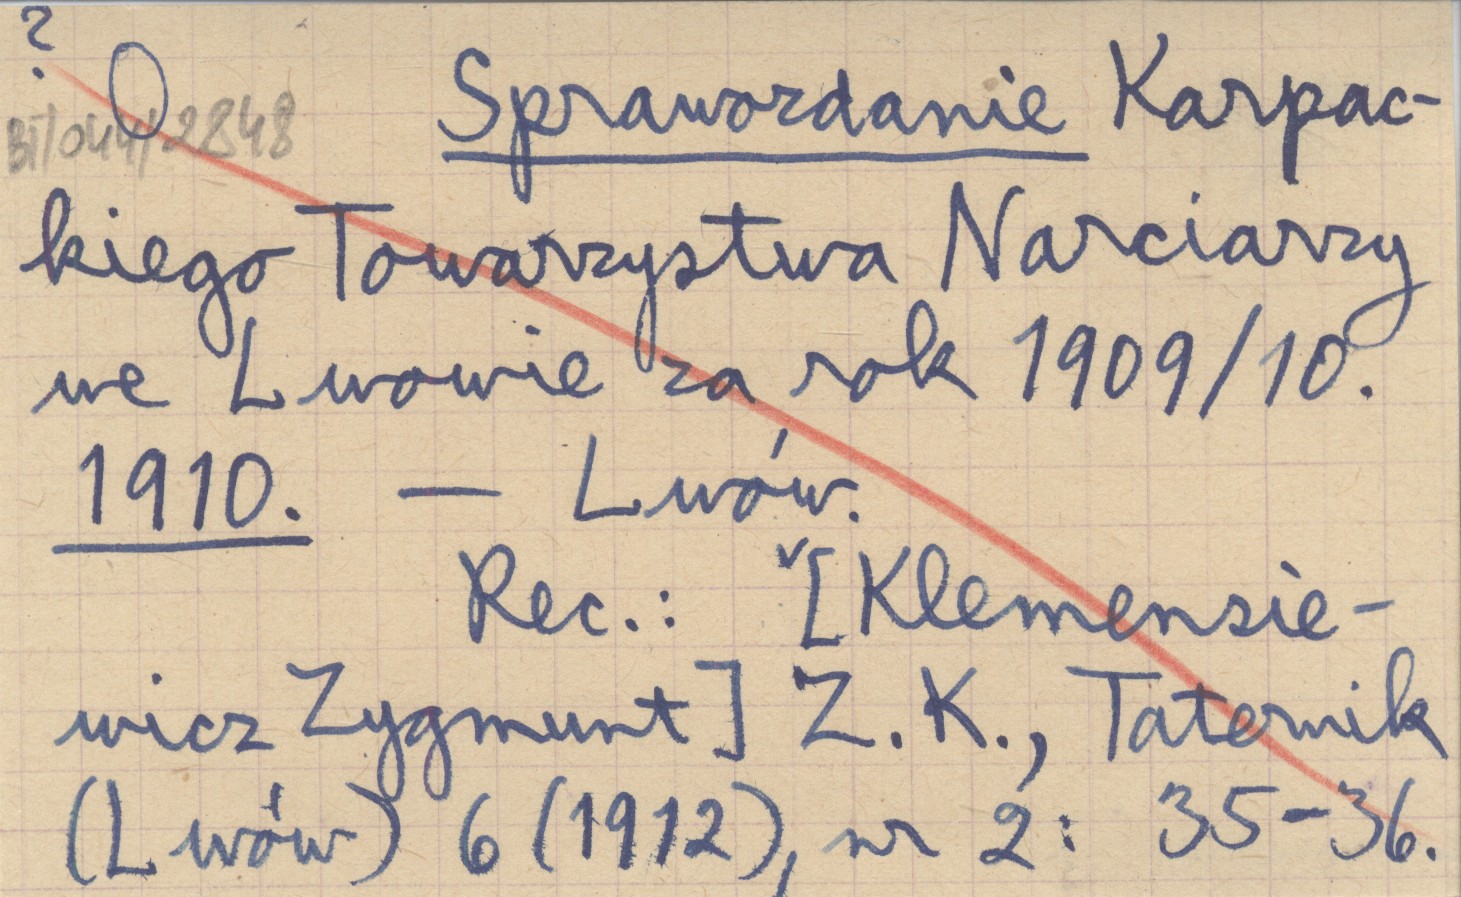 ?
O
BT/044/2848
Sprawozdanie Karpac-
kiego Towarzystwa Narciarzy
we Lwowie za rok 1909/10.
1910. — Lwów.
Rec.: ✓[Klemensie-
wicz Zygmunt] Z. K., Taternik
(Lwów) 6 (1912), nr 2: 35-36.